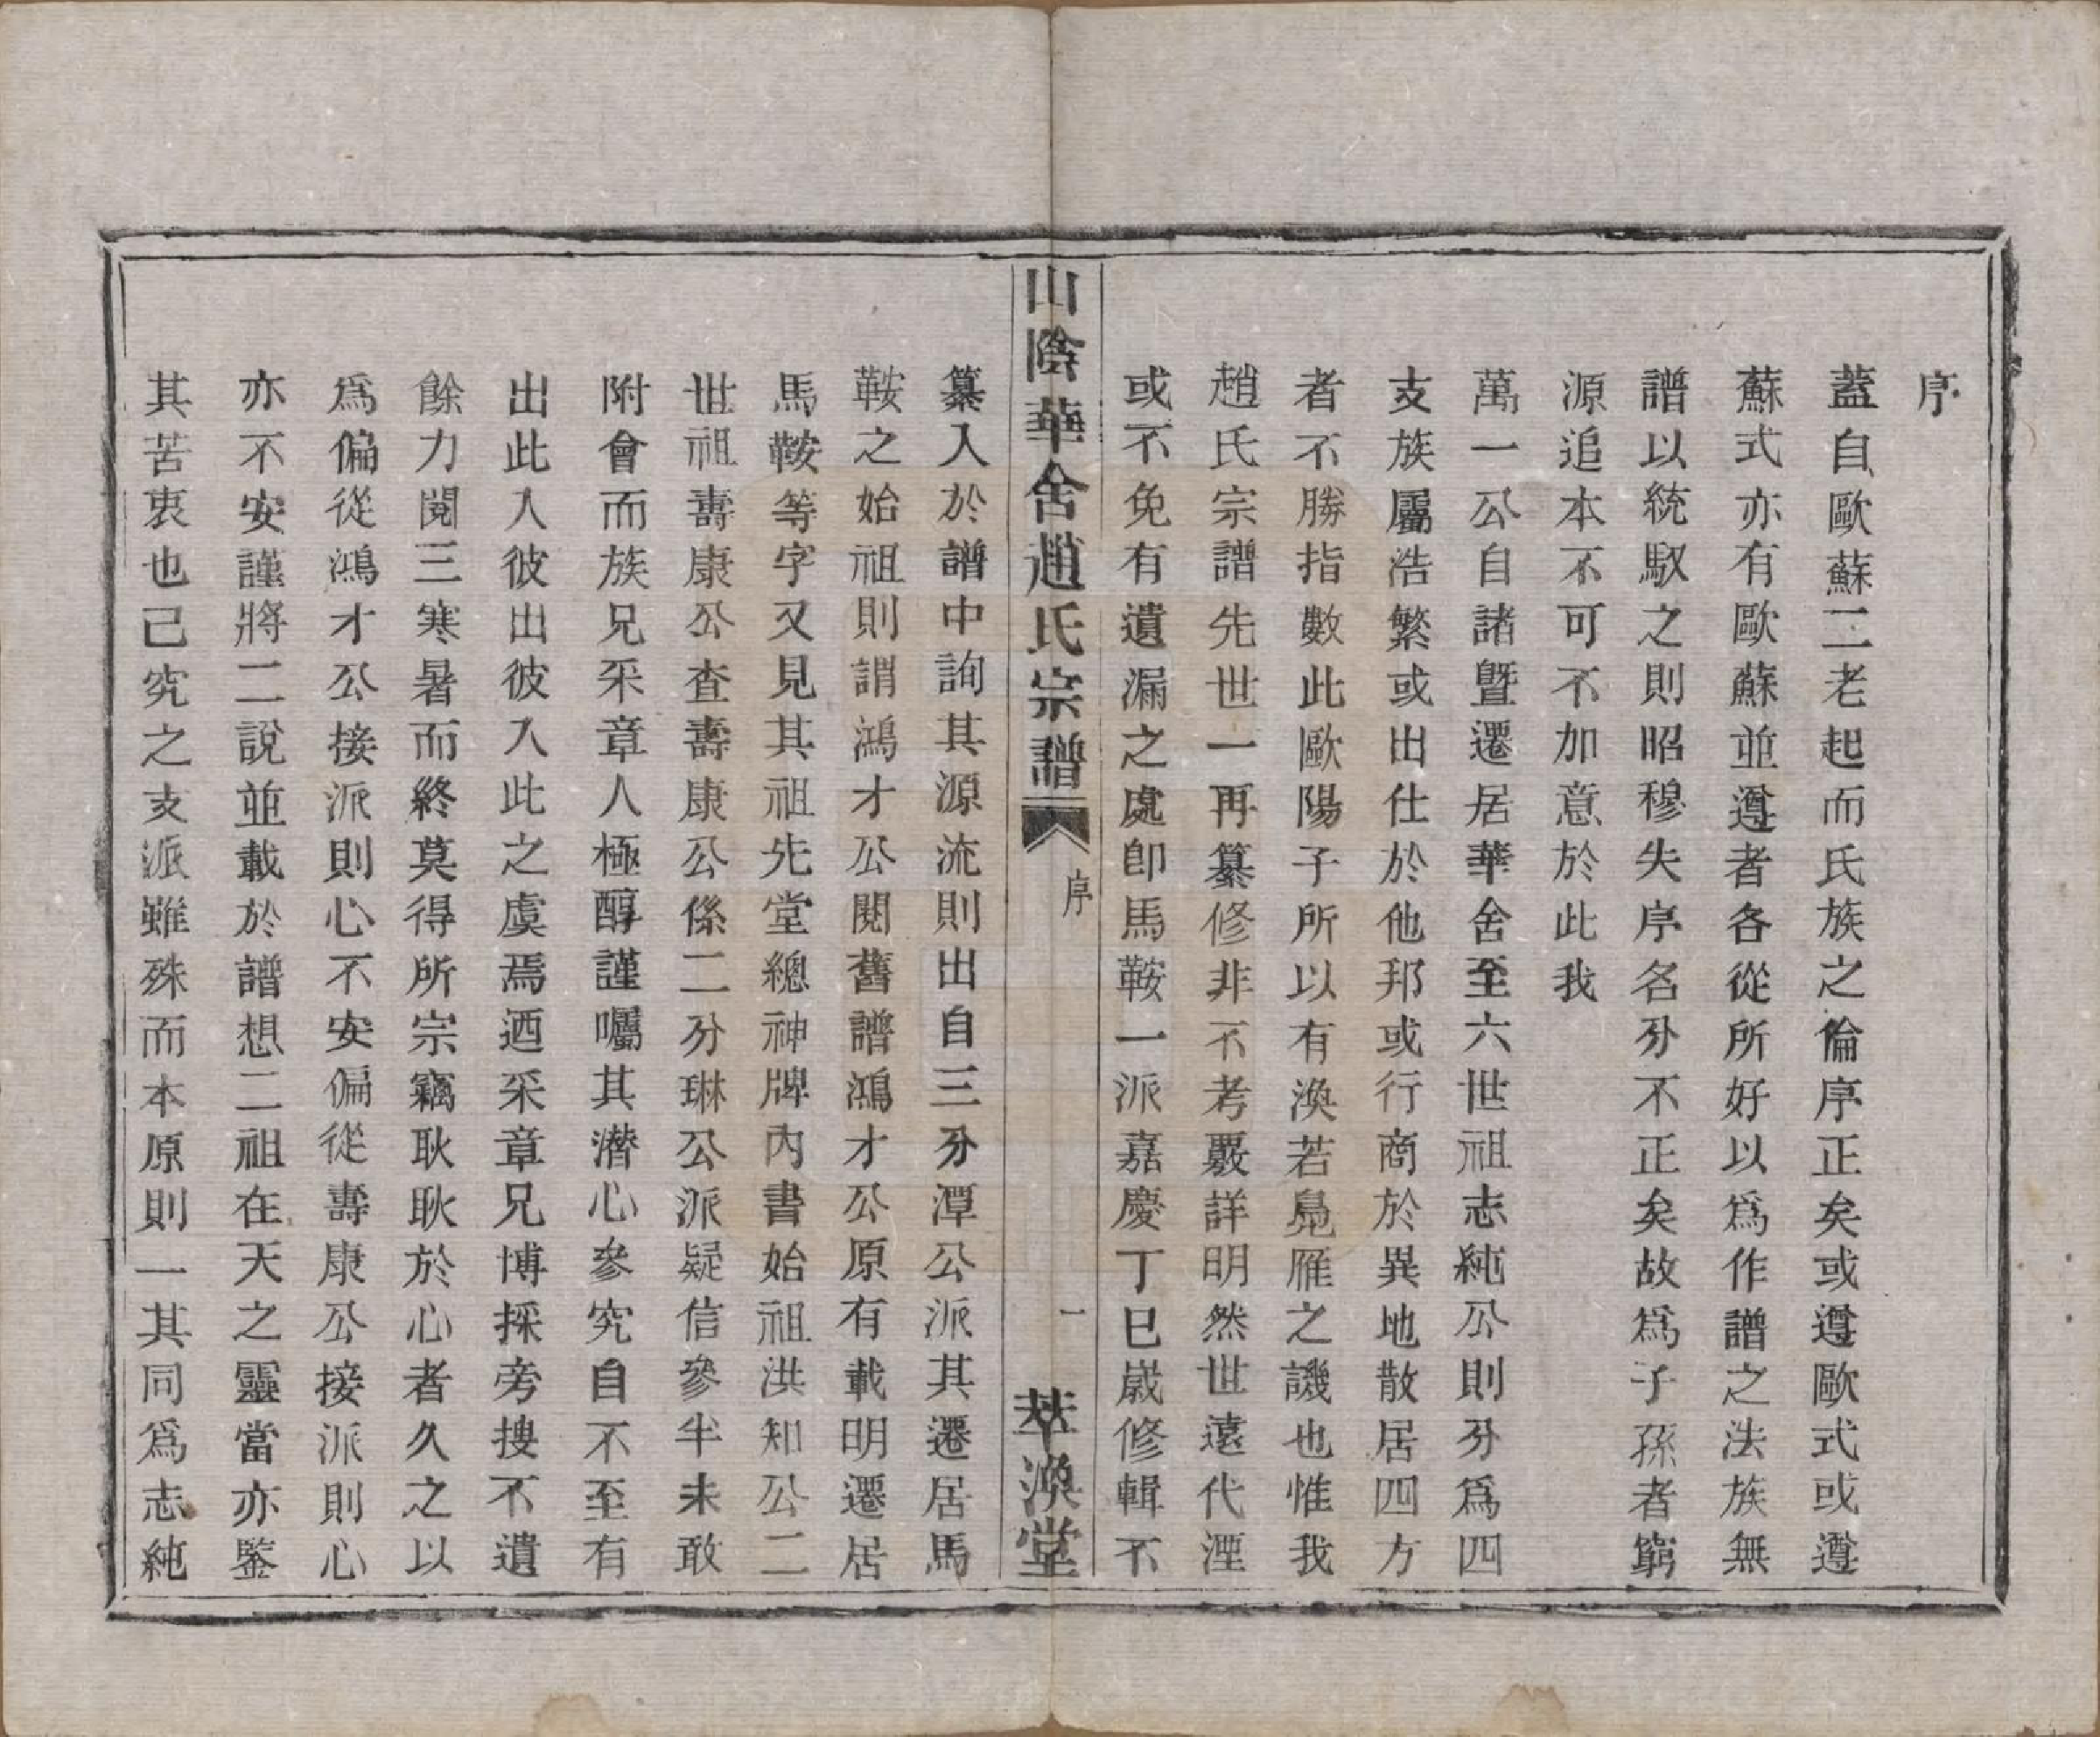 序
蓋自歐蘇二老起而氏族之倫序正矣或遵歐式或遵
蘇式亦有歐蘇並遵者各從所好以爲作譜之法族無
譜以統馭之則昭穆失序名分不正矣故爲子孫者窮
源追本不可不加意於此我
萬一公自諸暨遷居華舍至六世祖志純公則分爲四
支族屬浩繁或出仕於他邦或行商於異地散居四方
者不勝指數此歐陽子所以有渙若鳧雁之譏也惟我
趙氏宗譜先世一再纂修非不考覈詳明然世遠代湮
或不免有遺漏之處卽馬鞍一派嘉慶丁巳歲修輯不
山陰華舍趙氏宗譜 序 一 萃渙堂
纂入於譜中詢其源流則出自三分潭公派其遷居馬
鞍之始祖則謂鴻才公閱舊譜鴻才公原有載明遷居
馬鞍等字又見其祖先堂總神牌內書始祖洪知公二
世祖壽康公查壽康公係二分琳公派疑信參半未敢
附會而族兄采章人極醇謹囑其潛心參究自不至有
出此入彼出彼入此之虞焉迺采章兄博採旁搜不遺
餘力閱三寒暑而終莫得所宗竊耿耿於心者久之以
爲偏從鴻才公接派則心不安偏從壽康公接派則心
亦不安謹將二說並載於譜想二祖在天之靈當亦鑒
其苦衷也已究之支派雖殊而本原則一其同爲志純